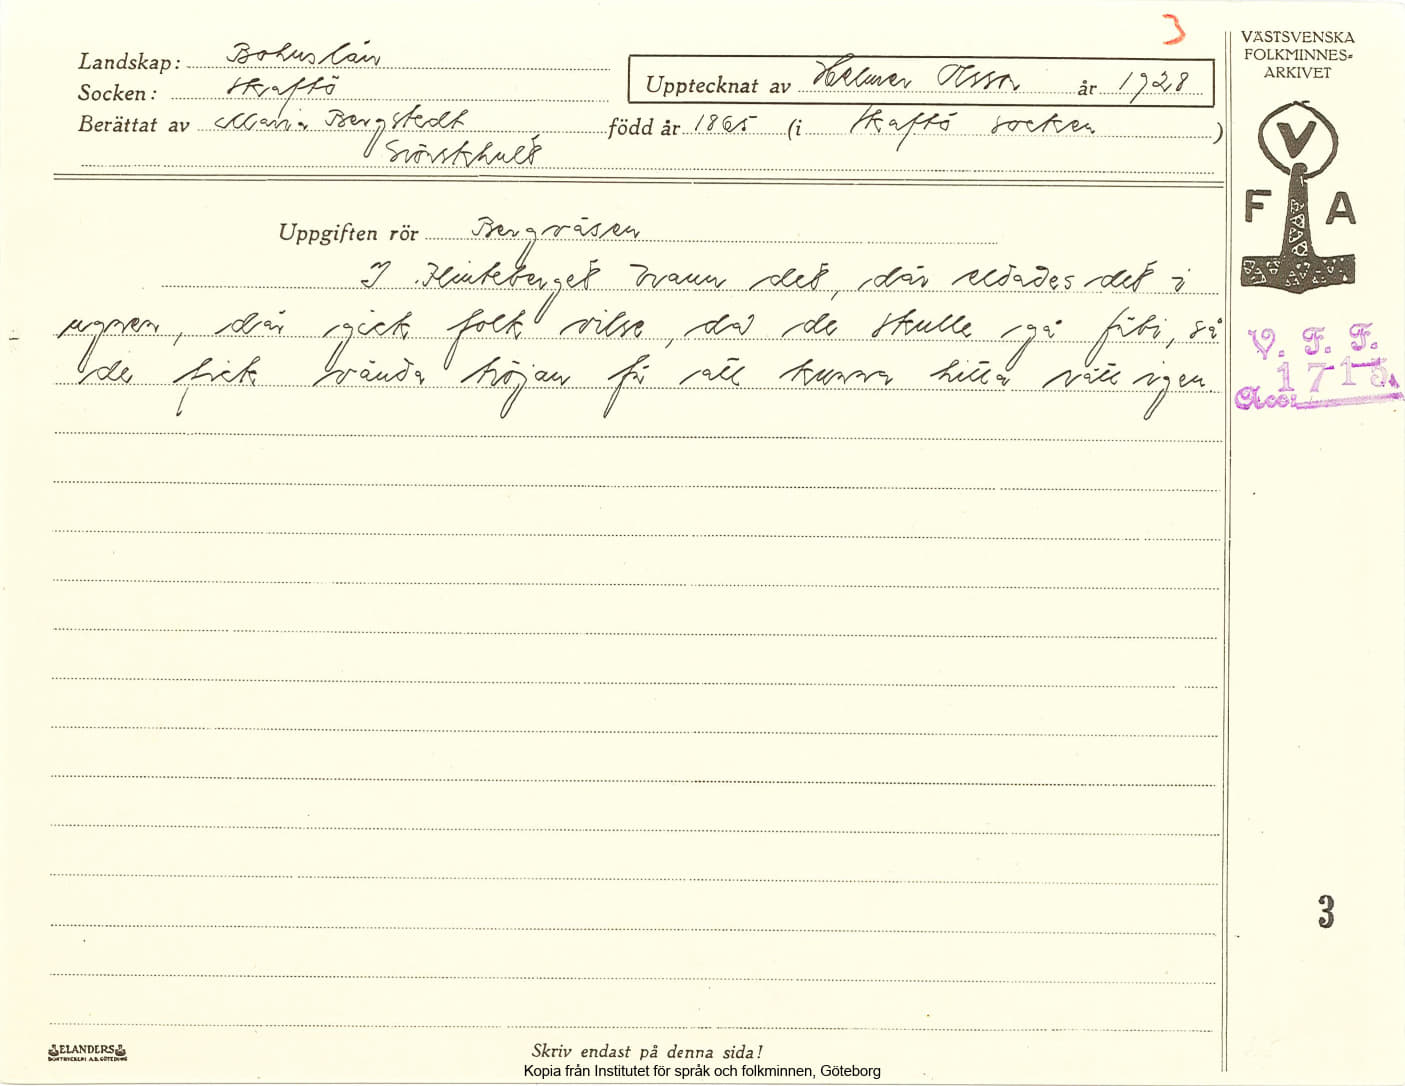 3
VÄSTSVENSKA
FOLKMINNES=
ARKIVET
Landskap: Bohuslän
Socken: Skaftö
Upptecknat av Helmer Olsson år 1928
Berättat av Maria Bergstedt född år 1865 (i Skaftö socken)
V
F A
Uppgiften rör Bergväsen
I berget brann det, där eldades det i
ugnen, där gick folk vilse, då de skulle gå förbi, så
de fick vända tröjan för att kunna hitta rätt igen
V. F. F.
Acc: 1715.
3
ELANDERS
BOKTRYCKERI A.B. GÖTEBORG
Skriv endast på denna sida!
Kopia från Institutet för språk och folkminnen, Göteborg